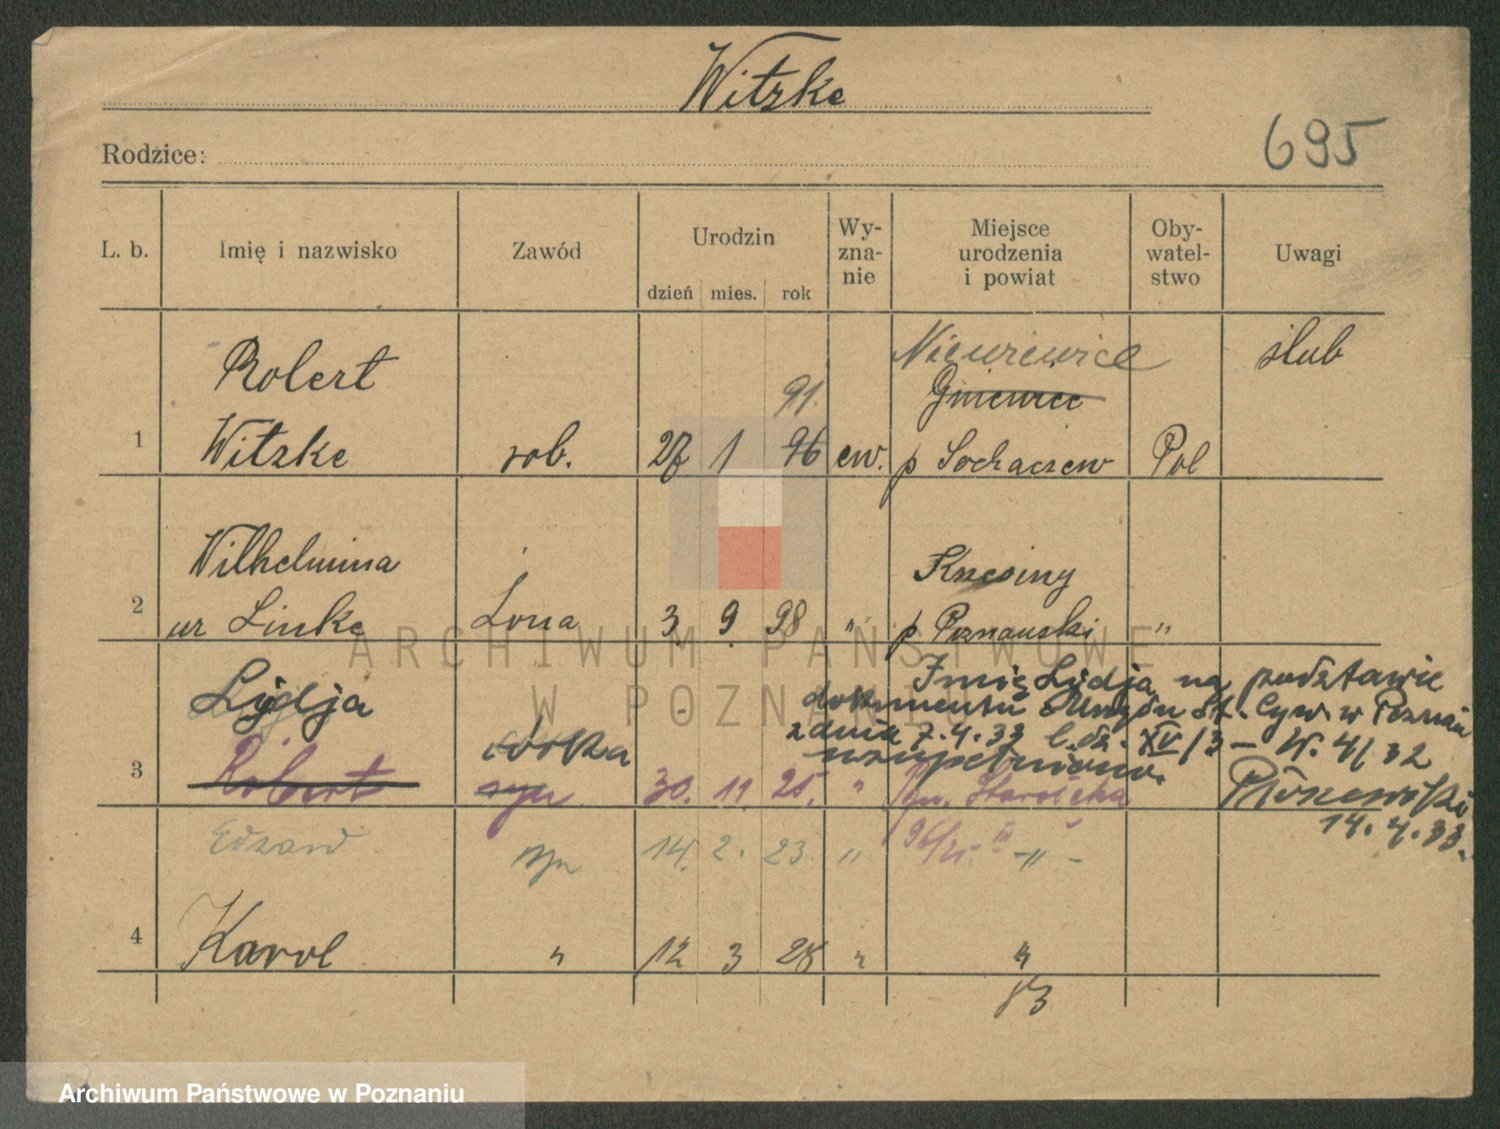 Witzke
695
Rodzice:
L. b. Imię i nazwisko Zawód Urodzin dzień mies. rok Wy-zna-nie Miejsce urodzenia i powiat Oby-watel-stwo Uwagi
Robert ślub
91.
Gniewice
1 Witzke rob. 27 1 96 ew. p Sochaczew Pol
Wilhelmina Krzesiny
2 ur Linke żona 3 9 98 " p Poznański "
Lidja Imię Lidja na podstawie
dokumentu Urzędu St. Cyw. w Poznaniu
z dnia 7.4.33 l. dz. XV/3 – W. 4/32
córka uzupełniono.
3 Robert syn 30. 11. 25. " Pn. Starołęka
14. 4. 33.
Edward syn 14. 2. 23. " -"-
4 Karol " 12 3 28 " "
83
ARCHIWUM PAŃSTWOWE
W POZNANIU
Archiwum Państwowe w Poznaniu